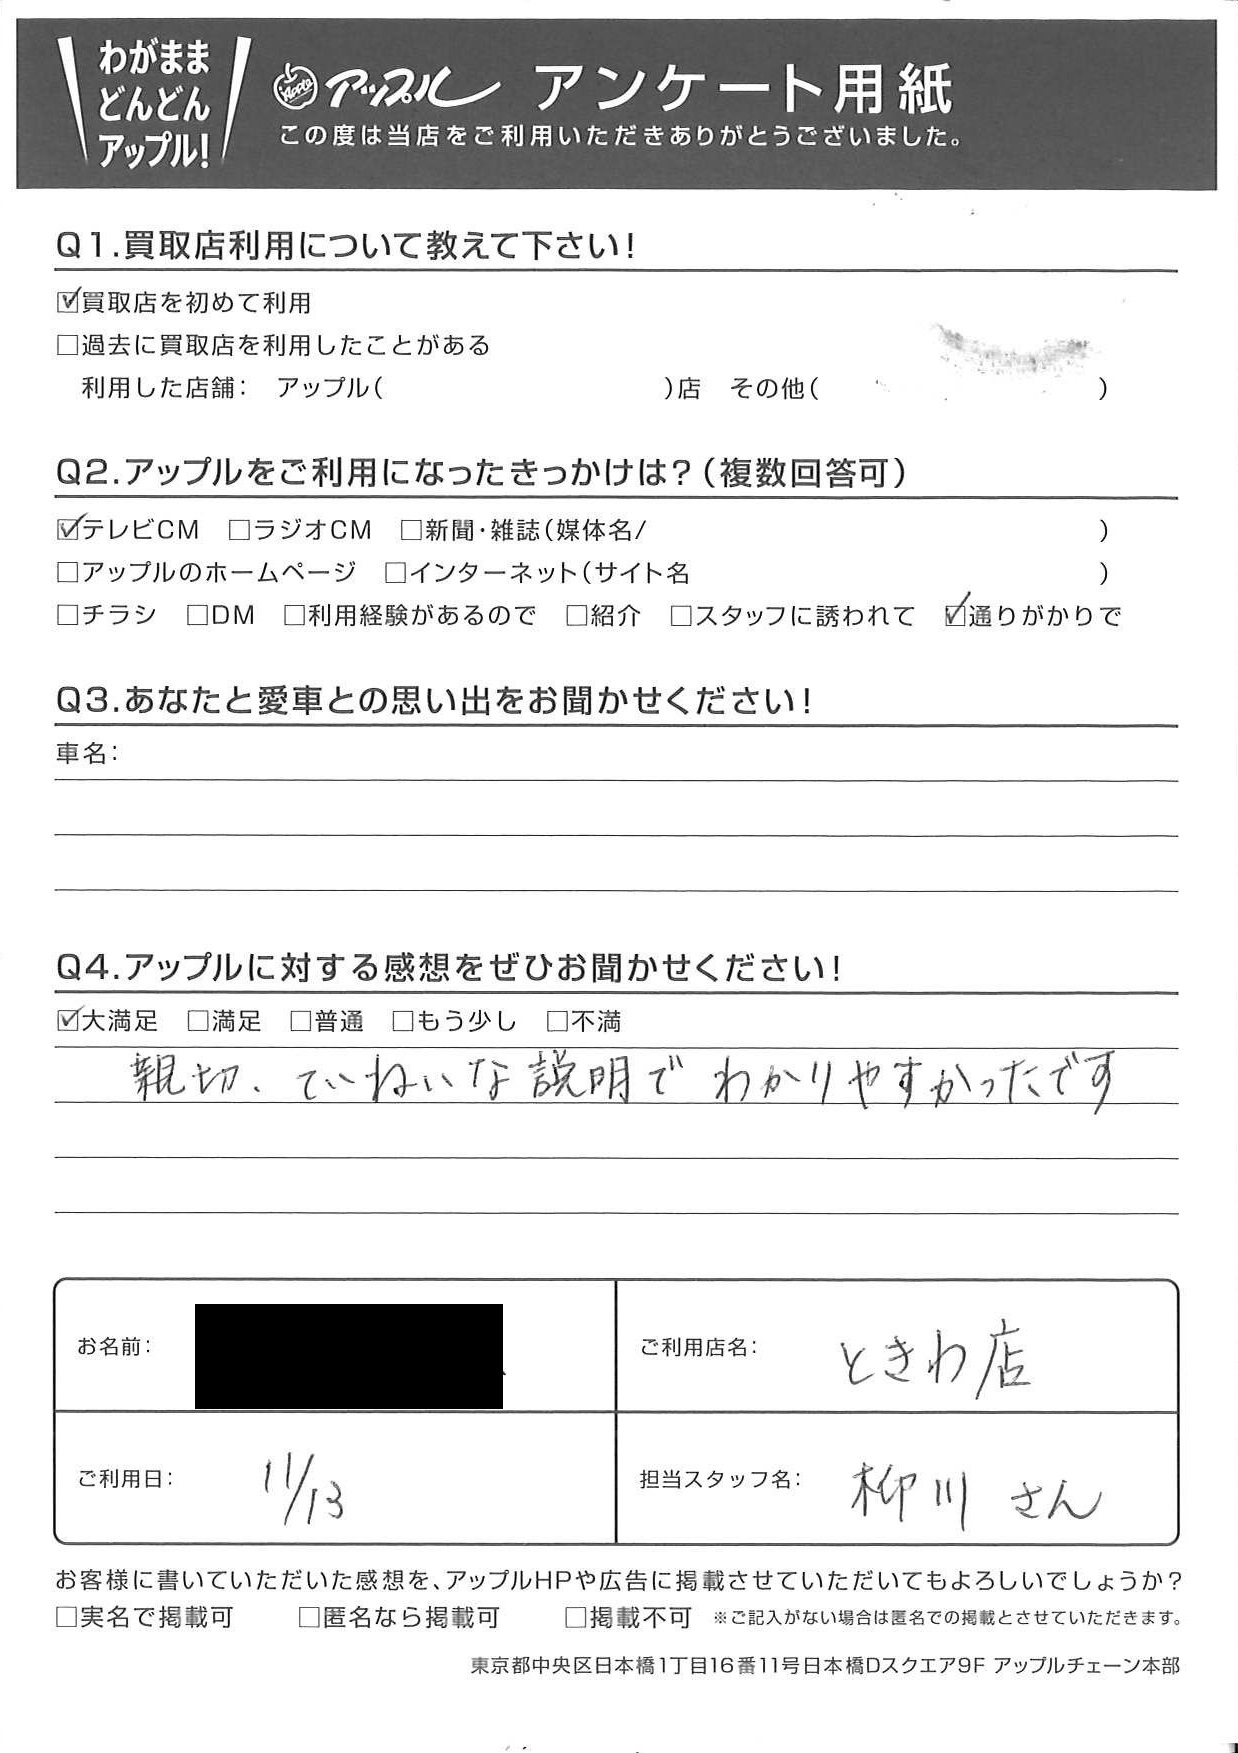 わがまま
どんどん
アップル!
Apple アップル アンケート用紙
この度は当店をご利用いただきありがとうございました。
Q1.買取店利用について教えて下さい!
☑買取店を初めて利用
□過去に買取店を利用したことがある
利用した店舗: アップル( )店 その他( )
Q2.アップルをご利用になったきっかけは?(複数回答可)
☑テレビCM □ラジオCM □新聞・雑誌(媒体名/ )
□アップルのホームページ □インターネット(サイト名 )
□チラシ □DM □利用経験があるので □紹介 □スタッフに誘われて ☑通りがかりで
Q3.あなたと愛車との思い出をお聞かせください!
車名:
Q4.アップルに対する感想をぜひお聞かせください!
☑大満足 □満足 □普通 □もう少し □不満
親切、ていねいな説明でわかりやすかったです
お名前: ご利用店名: ときわ店
ご利用日: 11/13 担当スタッフ名: 柳川さん
お客様に書いていただいた感想を、アップルHPや広告に掲載させていただいてもよろしいでしょうか?
□実名で掲載可 □匿名なら掲載可 □掲載不可 ※ご記入がない場合は匿名での掲載とさせていただきます。
東京都中央区日本橋1丁目16番11号日本橋Dスクエア9F アップルチェーン本部